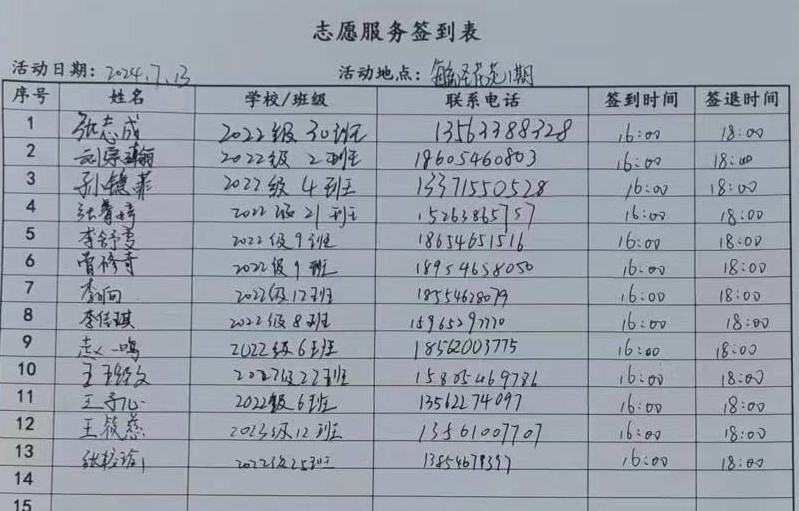 志愿服务签到表
活动日期: 2024.7.13 活动地点: 期
序号 姓名 学校/班级 联系电话 签到时间 签退时间
1 张志成 2022级30班 13563388328 16:00 18:00
2 2022级2班 18605460803 16:00 18:00
3 孙德菲 2022级4班 13371550528 16:00 18:00
4 张 2022级21班 15263865757 16:00 18:00
5 李舒 2022级9班 18654651516 16:00 18:00
6 曹修奇 2022级9班 18954658050 16:00 18:00
7 李 2022级12班 18554628079 16:00 18:00
8 李佳琪 2022级8班 16:00 18:00
9 赵一鸣 2022级6班 18562003775 16:00 18:00
10 王 2022级22班 15805469736 16:00 18:00
11 王子心 2022级6班 13562274097 16:00 18:00
12 王筱慈 2023级12班 13561007707 16:00 18:00
13 张 2022级25班 16:00 18:00
14
15